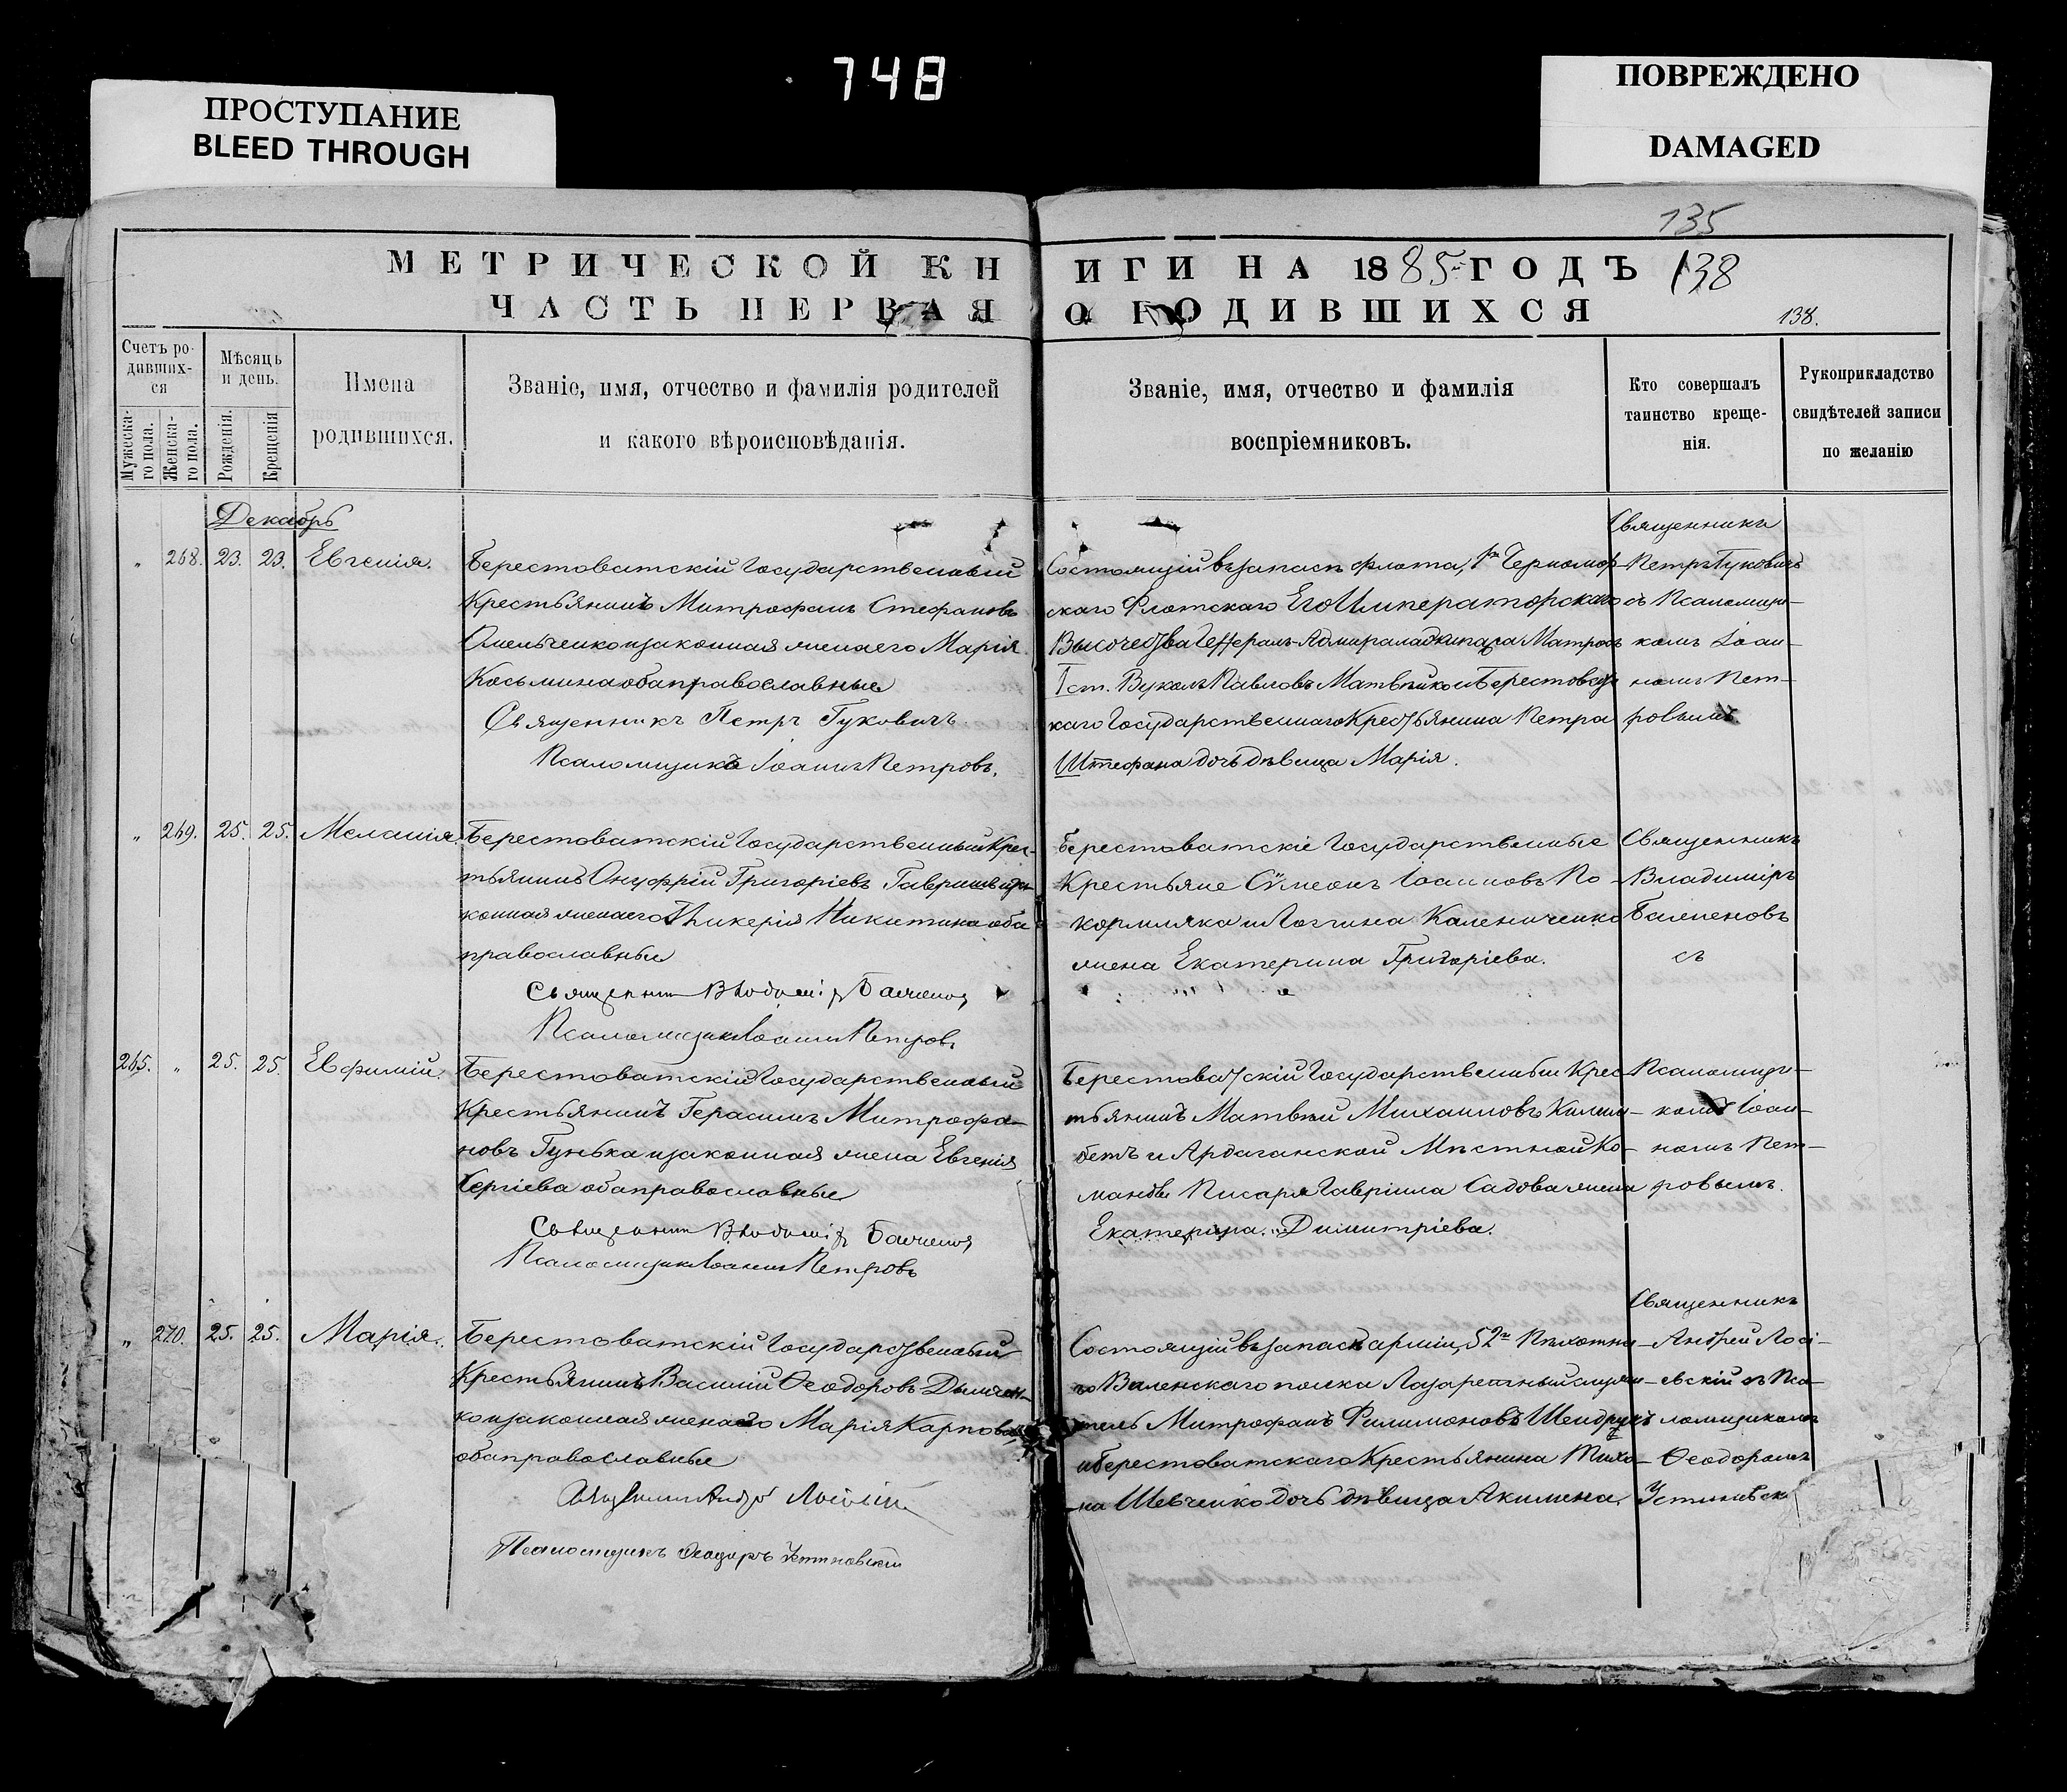 748
ПРОСТУПАНИЕ
BLEED THROUGH
ПОВРЕЖДЕНО
DAMAGED
135
МЕТРИЧЕСКОЙ КНИГИ НА 1885 ГОДЪ 138
ЧАСТЬ ПЕРВАЯ О РОДИВШИХСЯ
138.
Счетъ ро-
дивших-
ся
Мужеска-
го пола.
Женска-
го пола.
Мѣсяцъ
и день.
Рожденія.
Крещенія
Имена
родившихся.
Званіе, имя, отчество и фамилія родителей
и какого вѣроисповѣданія.
Званіе, имя, отчество и фамилія
воспріемниковъ.
Кто совершалъ
таинство креще-
нія.
Рукоприкладство
свидѣтелей записи
по желанію
Декабрь
" 268. 23. 23. Евгенія.
Берестоватскій Государственный
Крестьянинъ Митрофанъ Стефановъ
Омельченко и законная жена его Марія
Косьмина оба православные
Священникъ Петръ Гуковичъ
Псаломщикъ Іоаннъ Петровъ.
Состоящій въ запасѣ флота, 1го Черномор-
скаго Флотскаго Его Императорскаго
Высочества Генералъ-Адмирала экипажа Матросъ
1 ст. Вуколъ Павловъ Матвѣйко и Берестоват-
скаго Государственнаго Крестьянина Петра
Штефана дочь дѣвица Марія.
Священникъ
Петръ Гуковичъ
съ Псаломщи-
комъ Іоан-
номъ Пет-
ровымъ
" 269. 25. 25. Меланія.
Берестоватскій Государственный Крес-
тьянинъ Онуфрій Григоріевъ Гавришъ и за-
конная жена его Гликерія Никитина оба
православные
Священникъ Владиміръ Баженовъ
Псаломщикъ Іоаннъ Петровъ
Берестоватскіе Государственные
Крестьяне Сѵмеонъ Іоанновъ По-
кормяка и Логгина Калениченко
жена Екатерина Григоріева.
Священникъ
Владиміръ
Баженовъ
съ
265. " 25. 25. Евфимій.
Берестоватскій Государственный
Крестьянинъ Герасимъ Митрофа-
новъ Гунька и законная жена Евгенія
Сергіева оба православные
Священникъ Владиміръ Баженовъ
Псаломщикъ Іоаннъ Петровъ
Берестоватскій Государственный Крес-
тьянинъ Матвѣй Михаиловъ
и Ардаганской Мѣстной Ко-
манды Писаря Гавріила Садова жена
Екатерина Димитріева.
Псаломщи-
комъ Іоан-
номъ Пет-
ровымъ.
" 270. 25. 25. Марія.
Берестоватскій Государственный
Крестьянинъ Василій Ѳеодоровъ Дымчен-
ко и законная жена его Марія Карпова
оба православные
Священникъ Андрей
Псаломщикъ Ѳеодоръ Устиновскій
Состоящій въ запасѣ арміи, 52го Пѣхотна-
го Виленскаго полка Лазаретный служи-
тель Митрофанъ Филимоновъ Шендрикъ
и Берестоватскаго Крестьянина Тихо-
на Шевченко дочь дѣвица Акилина.
Священникъ
Андрей Лосі-
евскій съ Пса-
ломщикомъ
Ѳеодоромъ
Устиновск